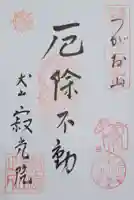 つがお山
厄除不動
犬山寂光院